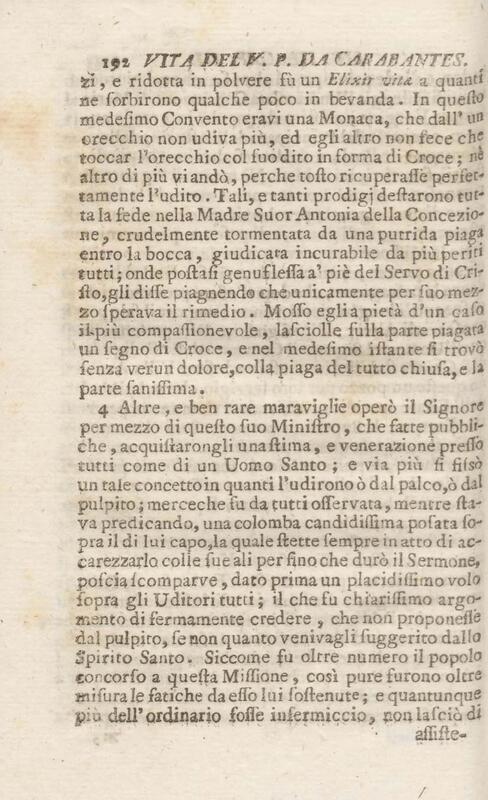 192 VITA DEL V. P. DA CARABANTES.
zi, e ridotta in polvere fù un Elixir vitæ a quanti
ne ſorbirono qualche poco in bevanda. In queſto
medeſimo Convento eravi una Monaca, che dall' un
orecchio non udiva più, ed egli altro non fece che
toccar l'orecchio col ſuo dito in forma di Croce; nè
altro di più vi andò, perche toſto ricuperaſſe perfet-
tamente l'udito. Tali, e tanti prodigj deſtarono tut-
ta la fede nella Madre Suor Antonia della Concezio-
ne, crudelmente tormentata da una putrida piaga
entro la bocca, giudicata incurabile da più periti
tutti; onde poſtaſi genufleſſa a' piè del Servo di Cri-
ſto, gli diſſe piagnendo che unicamente per ſuo mez-
zo ſperava il rimedio. Moſſo egli a pietà d'un caſo
il più compaſſionevole, laſciolle ſulla parte piagata
un ſegno di Croce, e nel medeſimo iſtante ſi trovò
ſenza verun dolore, colla piaga del tutto chiuſa, e la
parte ſaniſſima.
4 Altre, e ben rare maraviglie operò il Signore
per mezzo di queſto ſuo Miniſtro, che fatte pubbli-
che, acquiſtarongli una ſtima, e venerazione preſſo
tutti come di un Uomo Santo; e via più ſi fiſsò
un tale concetto in quanti l'udirono ò dal palco, ò dal
pulpito; merceche fu da tutti oſſervata, mentre ſta-
va predicando, una colomba candidiſſima poſata ſo-
pra il di lui capo, la quale ſtette ſempre in atto di ac-
carezzarlo colle ſue ali per fino che durò il Sermone,
poſcia ſcomparve, dato prima un placidiſſimo volo
ſopra gli Uditori tutti; il che fu chiariſſimo argo-
mento di fermamente credere, che non proponeſſe
dal pulpito, ſe non quanto venivagli ſuggerito dallo
Spirito Santo. Siccome fu oltre numero il popolo
concorſo a queſta Miſſione, così pure furono oltre
miſura le fatiche da eſſo lui ſoſtenute; e quantunque
più dell' ordinario foſſe infermiccio, non laſciò di
aſſiſte-